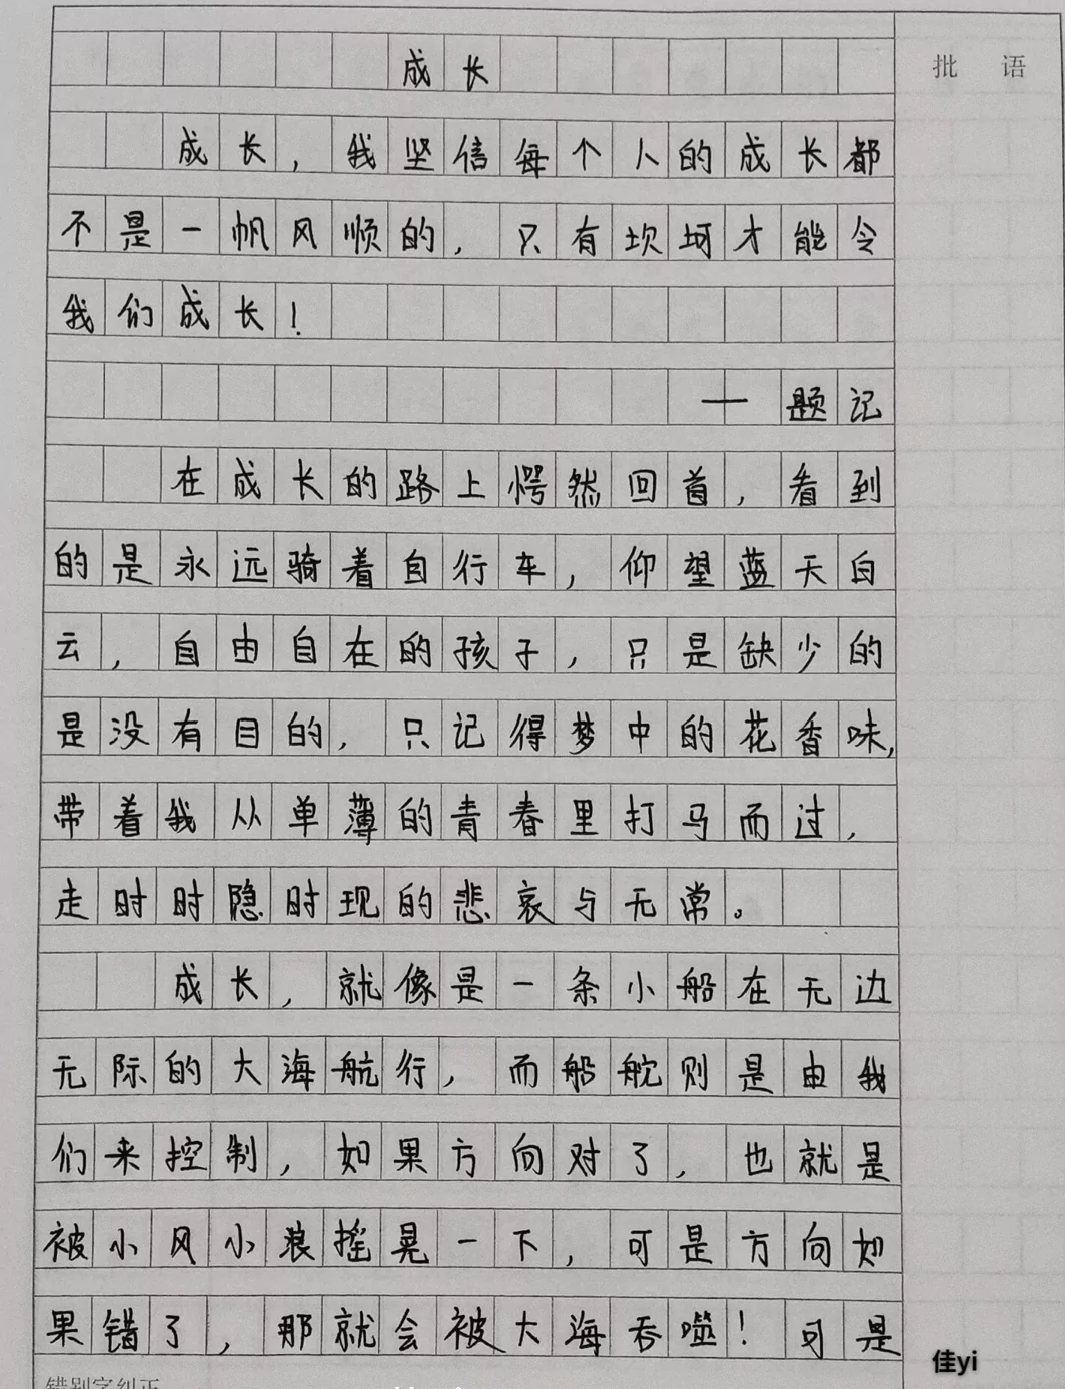 成长
批 语
成长，我坚信每个人的成长都
不是一帆风顺的，只有坎坷才能令
我们成长！
——题记
在成长的路上愕然回首，看到
的是永远骑着自行车，仰望蓝天白
云，自由自在的孩子，只是缺少的
是没有目的，只记得梦中的花香味，
带着我从单薄的青春里打马而过，
走时时隐时现的悲哀与无常。
成长，就像是一条小船在无边
无际的大海航行，而船舵则是由我
们来控制，如果方向对了，也就是
被小风小浪摇晃一下，可是方向如
果错了，那就会被大海吞噬！可是
错别字纠正
佳yi